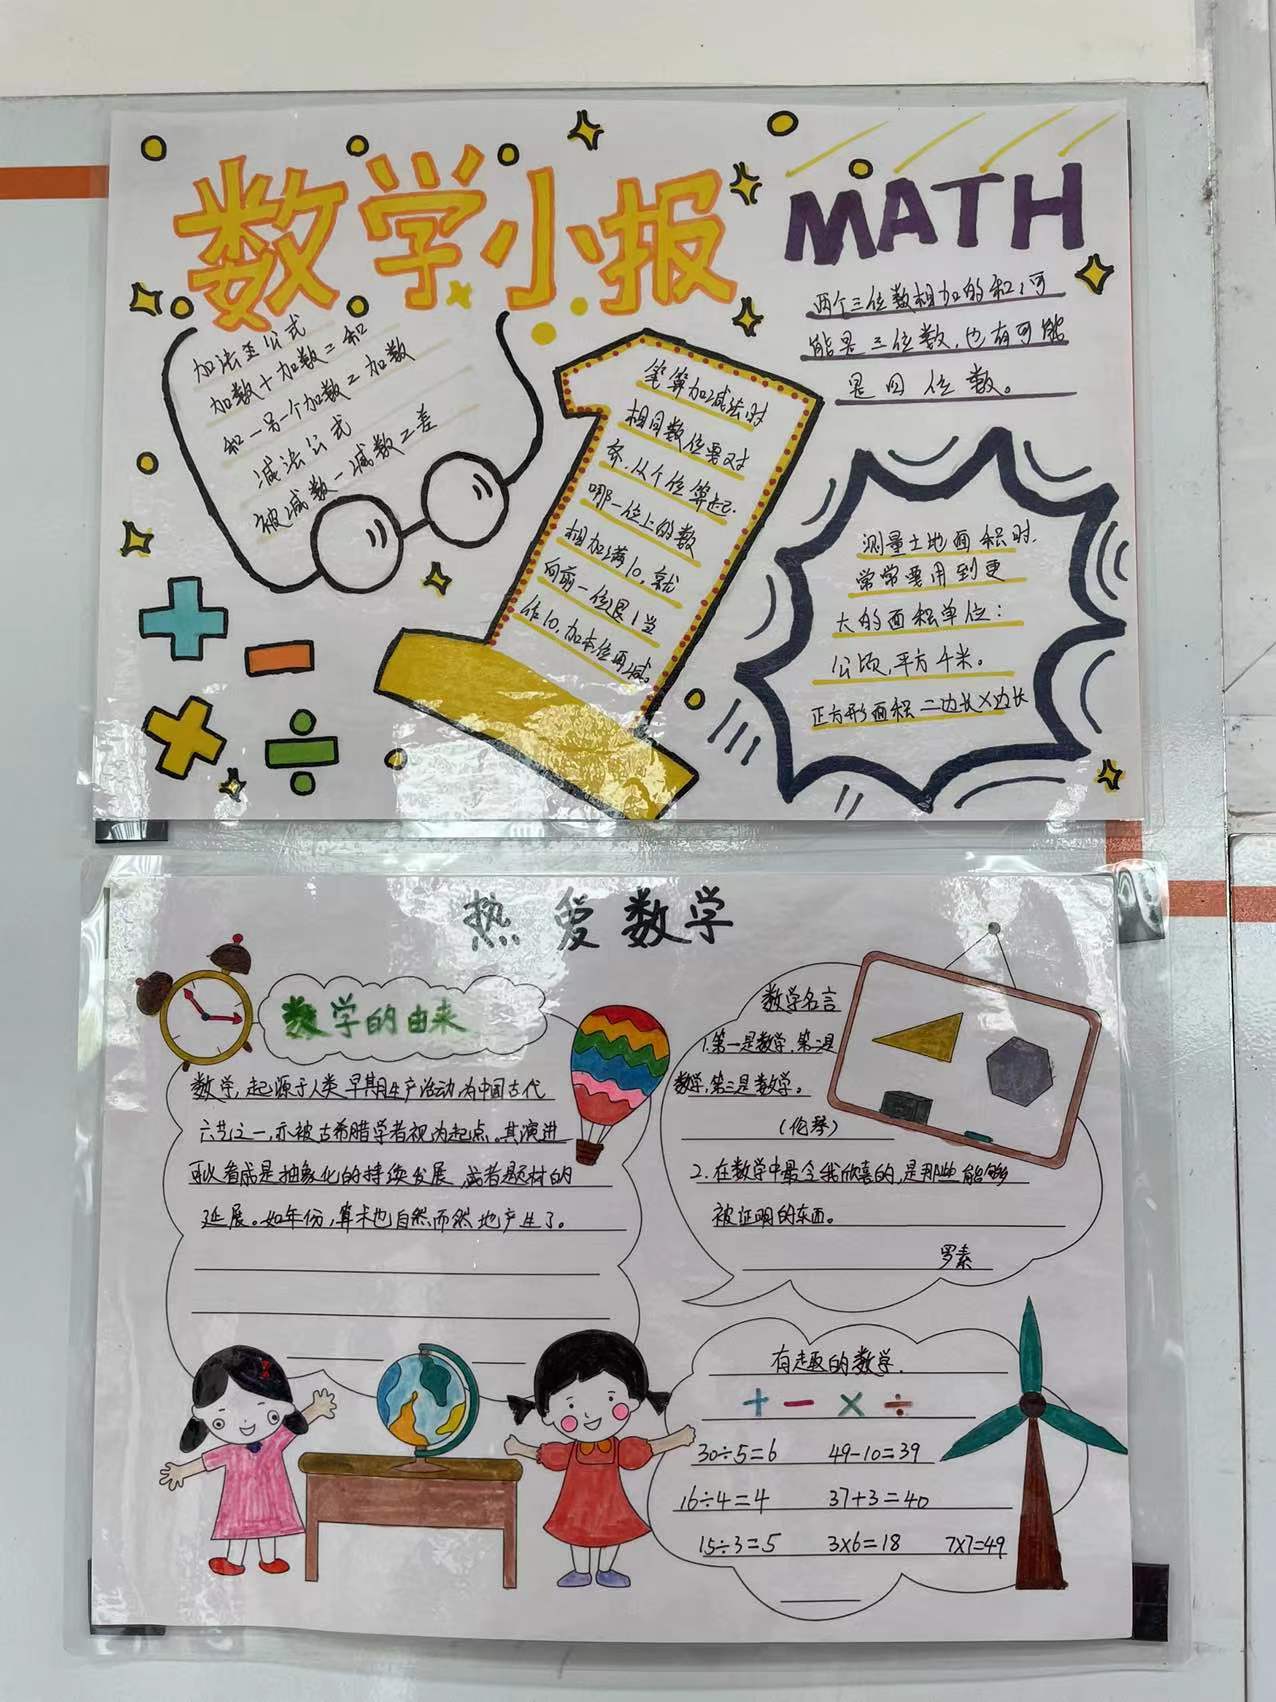 数学小报
MATH
两个三位数相加的和,可
能是三位数,也有可能
是四位数。
加法至公式
加数+加数=和
和-另一个加数=加数
减法公式
被减数-减数=差
笔算加减法时
相同数位要对
齐,从个位算起.
哪一位上的数
相加满10,就
向前一位退1当
作10,加本位再减。
测量土地面积时,
常常要用到更
大的面积单位:
公顷,平方千米。
正方形面积=边长×边长
热爱数学
数学的由来
数学,起源于人类早期生产活动,为中国古代
六艺之一,亦被古希腊学者视为起点。其演进
可以看成是抽象化的持续发展,或者题材的
延展。如年份,算术也自然而然地产生了。
数学名言
1.第一是数学,第二是
数学,第三是数学。
(伦琴)
2.在数学中最令我欣喜的,是那些能够
被证明的东西。
罗素
有趣的数学.
+ - × ÷
30÷5=6 49-10=39
16÷4=4 37+3=40
15÷3=5 3×6=18 7×7=49